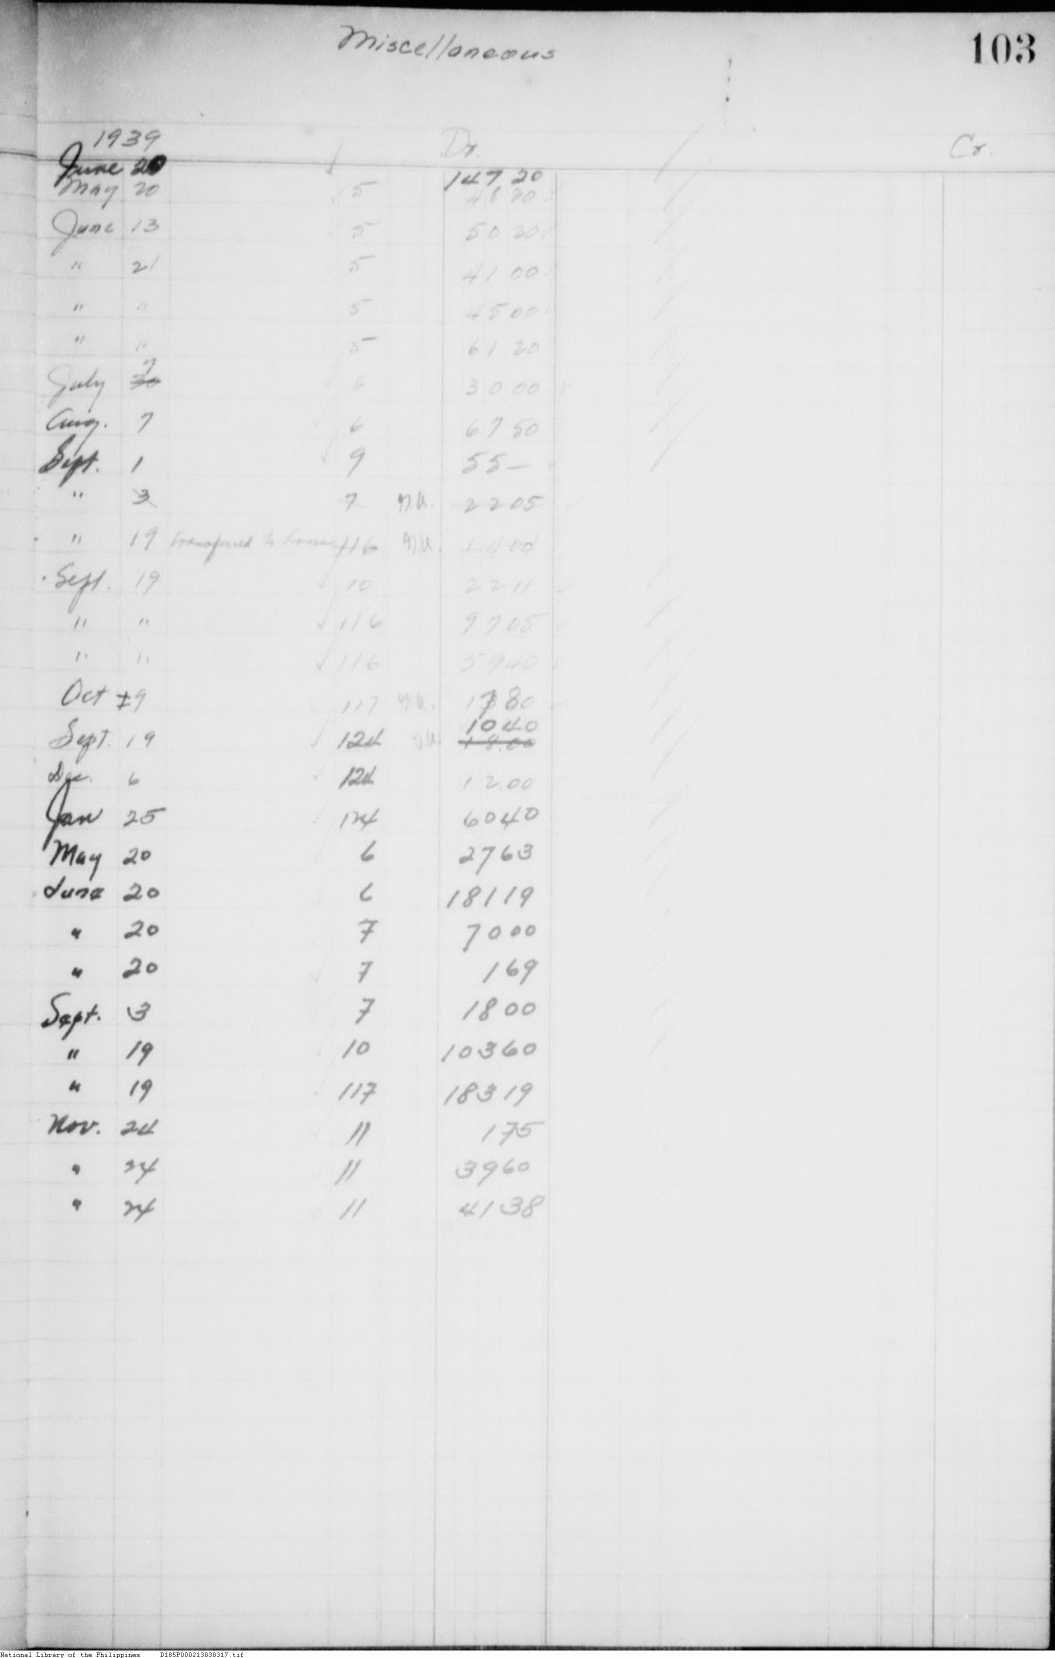 Miscellaneous
103
1939 Dr. Cr.
June 20 147 20
May 20 5 48 20
June 13 5 50 20
" 21 5 41 00
" " 5 45 00
" " 5 61 20
July 7 30 00
Aug. 7 6 67 50
Sept. 1 9 55 —
" 3 7 22 05
" 19 transferred to 116
Sept. 19 10 22 11
" " 116 97 05
" " 116 59 40
Oct 19 117 80
10 40
Sept. 19 124 18.00
Dec. 6 124 12.00
Jan 25 124 60 40
May 20 6 27 63
June 20 6 181 19
" 20 7 70 00
" 20 7 1 69
Sept. 3 7 18 00
" 19 10 103 60
" 19 117 183 19
Nov. 24 11 1 75
" 24 11 39 60
" 24 11 41 38
National Library of the Philippines D185P000213038317.tif